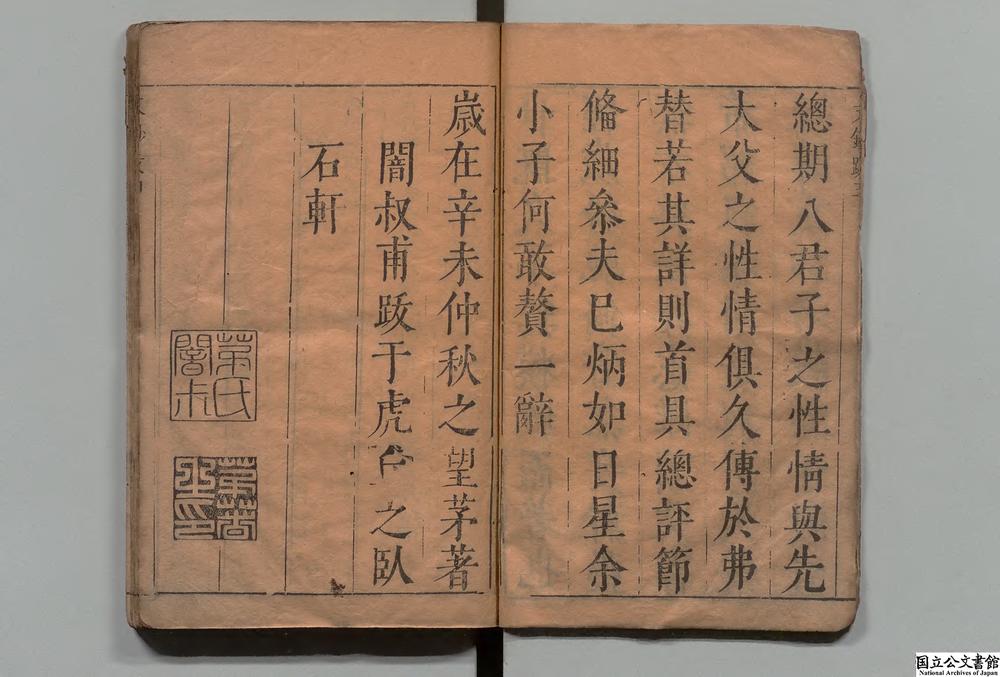 總期八君子之性情與先
大父之性情俱久傳於弗
替若其詳則首具總評節
偹細叅夫巳炳如日星余
小子何敢贅一辭
歲在辛未仲秋之望茅著
闇叔甫跋于虎 之臥
石軒
茅氏闇叔
茅著之印
国立公文書館
National Archives of Japan